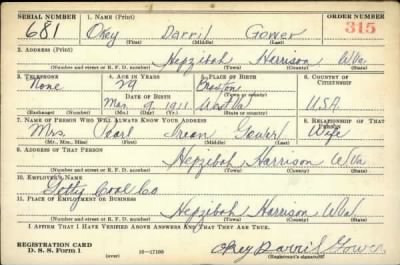 SERIAL NUMBER 1. NAME (Print) ORDER NUMBER
681 Okey Darril Gower 315
(First) (Middle) (Last)
2. ADDRESS (Print)
Hepzibah Harrison W Va.
(Number and street or R. F. D. number) (Town) (County) (State)
3. TELEPHONE 4. AGE IN YEARS 5. PLACE OF BIRTH 6. COUNTRY OF CITIZENSHIP
None 29 Braxton
(Town or county)
DATE OF BIRTH
Mar 9 1911 West Va U.S.A.
(Exchange) (Number) (Mo.) (Day) (Yr.) (State or country)
7. NAME OF PERSON WHO WILL ALWAYS KNOW YOUR ADDRESS 8. RELATIONSHIP OF THAT PERSON
Mrs. Pearl Irean Gower Wife
(Mr., Mrs., Miss) (First) (Middle) (Last)
9. ADDRESS OF THAT PERSON
Hepzibah Harrison W Va
(Number and street or R. F. D. number) (Town) (County) (State)
10. EMPLOYER'S NAME
Coal Co
11. PLACE OF EMPLOYMENT OR BUSINESS
Hepzibah Harrison W Va
(Number and street or R. F. D. number) (Town) (County) (State)
I AFFIRM THAT I HAVE VERIFIED ABOVE ANSWERS AND THAT THEY ARE TRUE.
REGISTRATION CARD
D. S. S. Form 1 (over) 16—17105 Okey Darril Gower
(Registrant's signature)